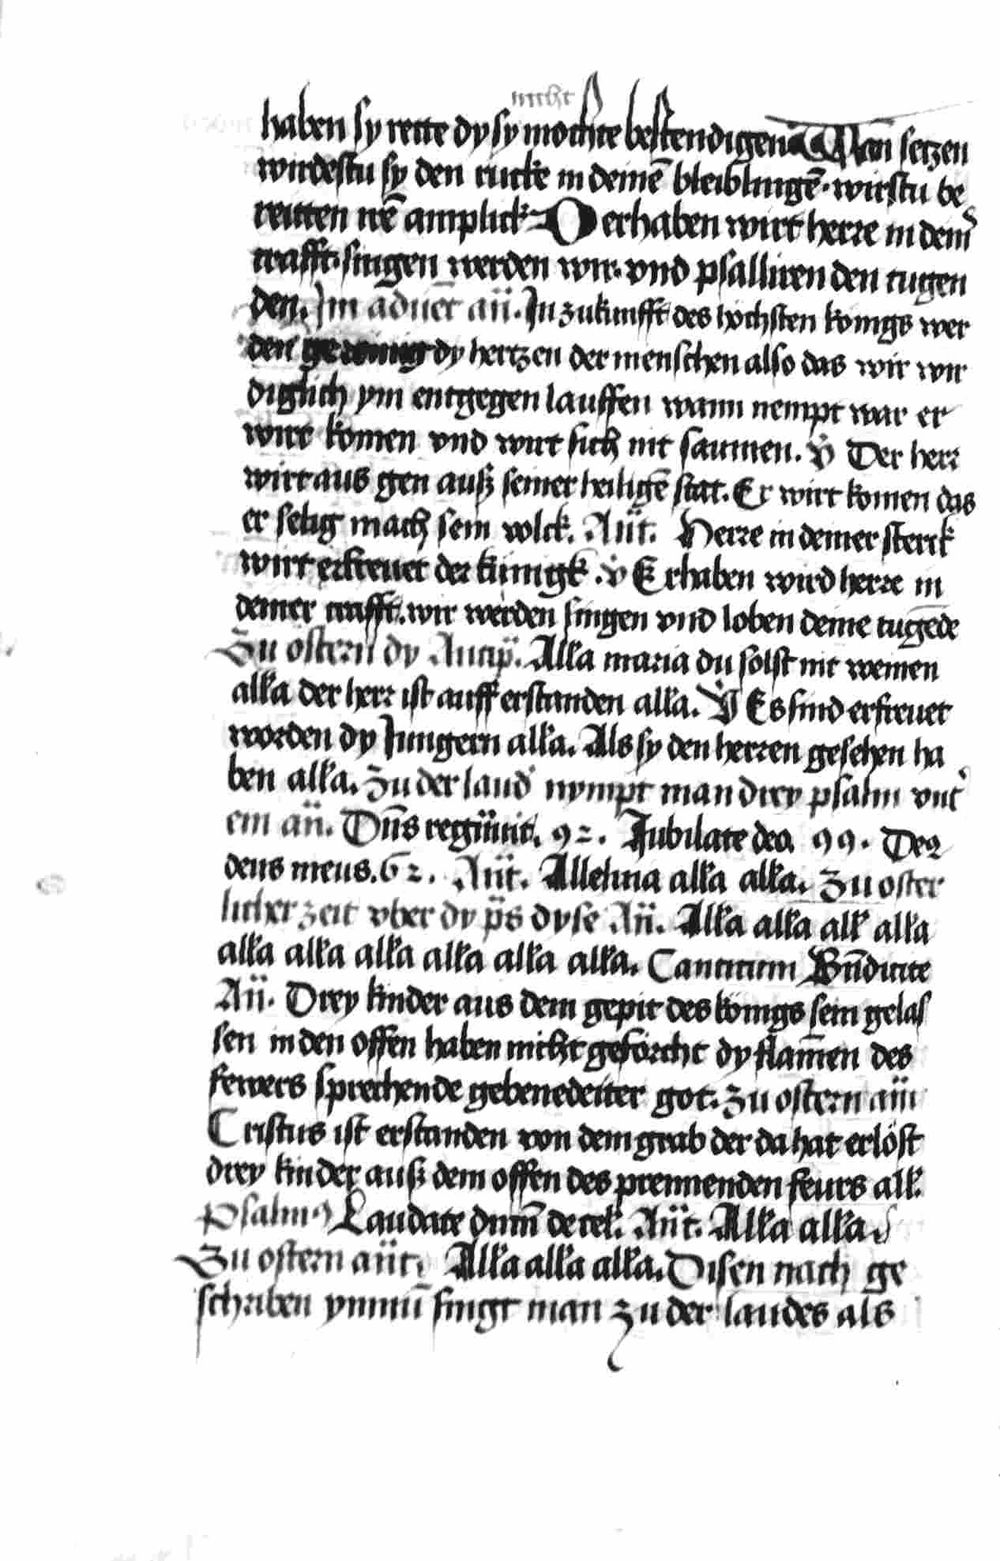 nicht
haben sy rette dy sy mochte bestendigen Wan setzen
wirdestu sy den rucke in deinē bleiblingē · wirstu be
reitten irē amplick O erhaben wirt herre in dein
crafft · singen werden wir · vnd psalliren den tugen
den. Im aduēt an̄. In zukunfft des hochsten konigs wer
den gereinig dy hertzen der menschen also das wir wir
diglich ym entgegen lauffen wann nempt war er
wirt komen vnd wirt sich nit saumen. V̊ Der herr
wirt aus gen auß seiner heiligē stat. Er wirt komen das
er selig mach sein volck. An̄t. Herre in deiner sterck
wirt erfreuet der künigk . v̊ Erhaben wird herre in
deiner crafft. wir werden singen vnd loben deine tugēde
Zu ostern dy Antip̄. Alła maria du solst nit weinen
alła der herr ist auff erstanden alła. V̊ Es sind erfreuet
worden dy Jungern alła. Als sy den herren gesehen ha
ben alła. Zu der laud nympt man drey psalm vnt
ein an̄. Dn̄s regnauit. 92. Jubilate deo 99. Deꝰ
deus meus. 62. An̄t. Alleluia alła alła. Zu oster
licher zeit vber dy p̄s dyse An̄. Alła alła alł alła
alła alła alła alła alła alła. Canticum Bn̄dicite
An̄. Drey kinder aus dem gepit des konigs sein gelas
sen in den offen haben nicht geforcht dy flam̄en des
fewers sprechende gebenedeiter got. Zu ostern an̄
Cristus ist erstanden von dem grab der da hat erlöst
drey kinder auß dem offen des prennenden feurs alł.
Psalmꝰ Laudate dnm̄ de cel. An̄t. Alła alła
Zu ostern an̄t. Alła alła alła. Disen nach ge
schriben ymnū singt man zu der laudes als